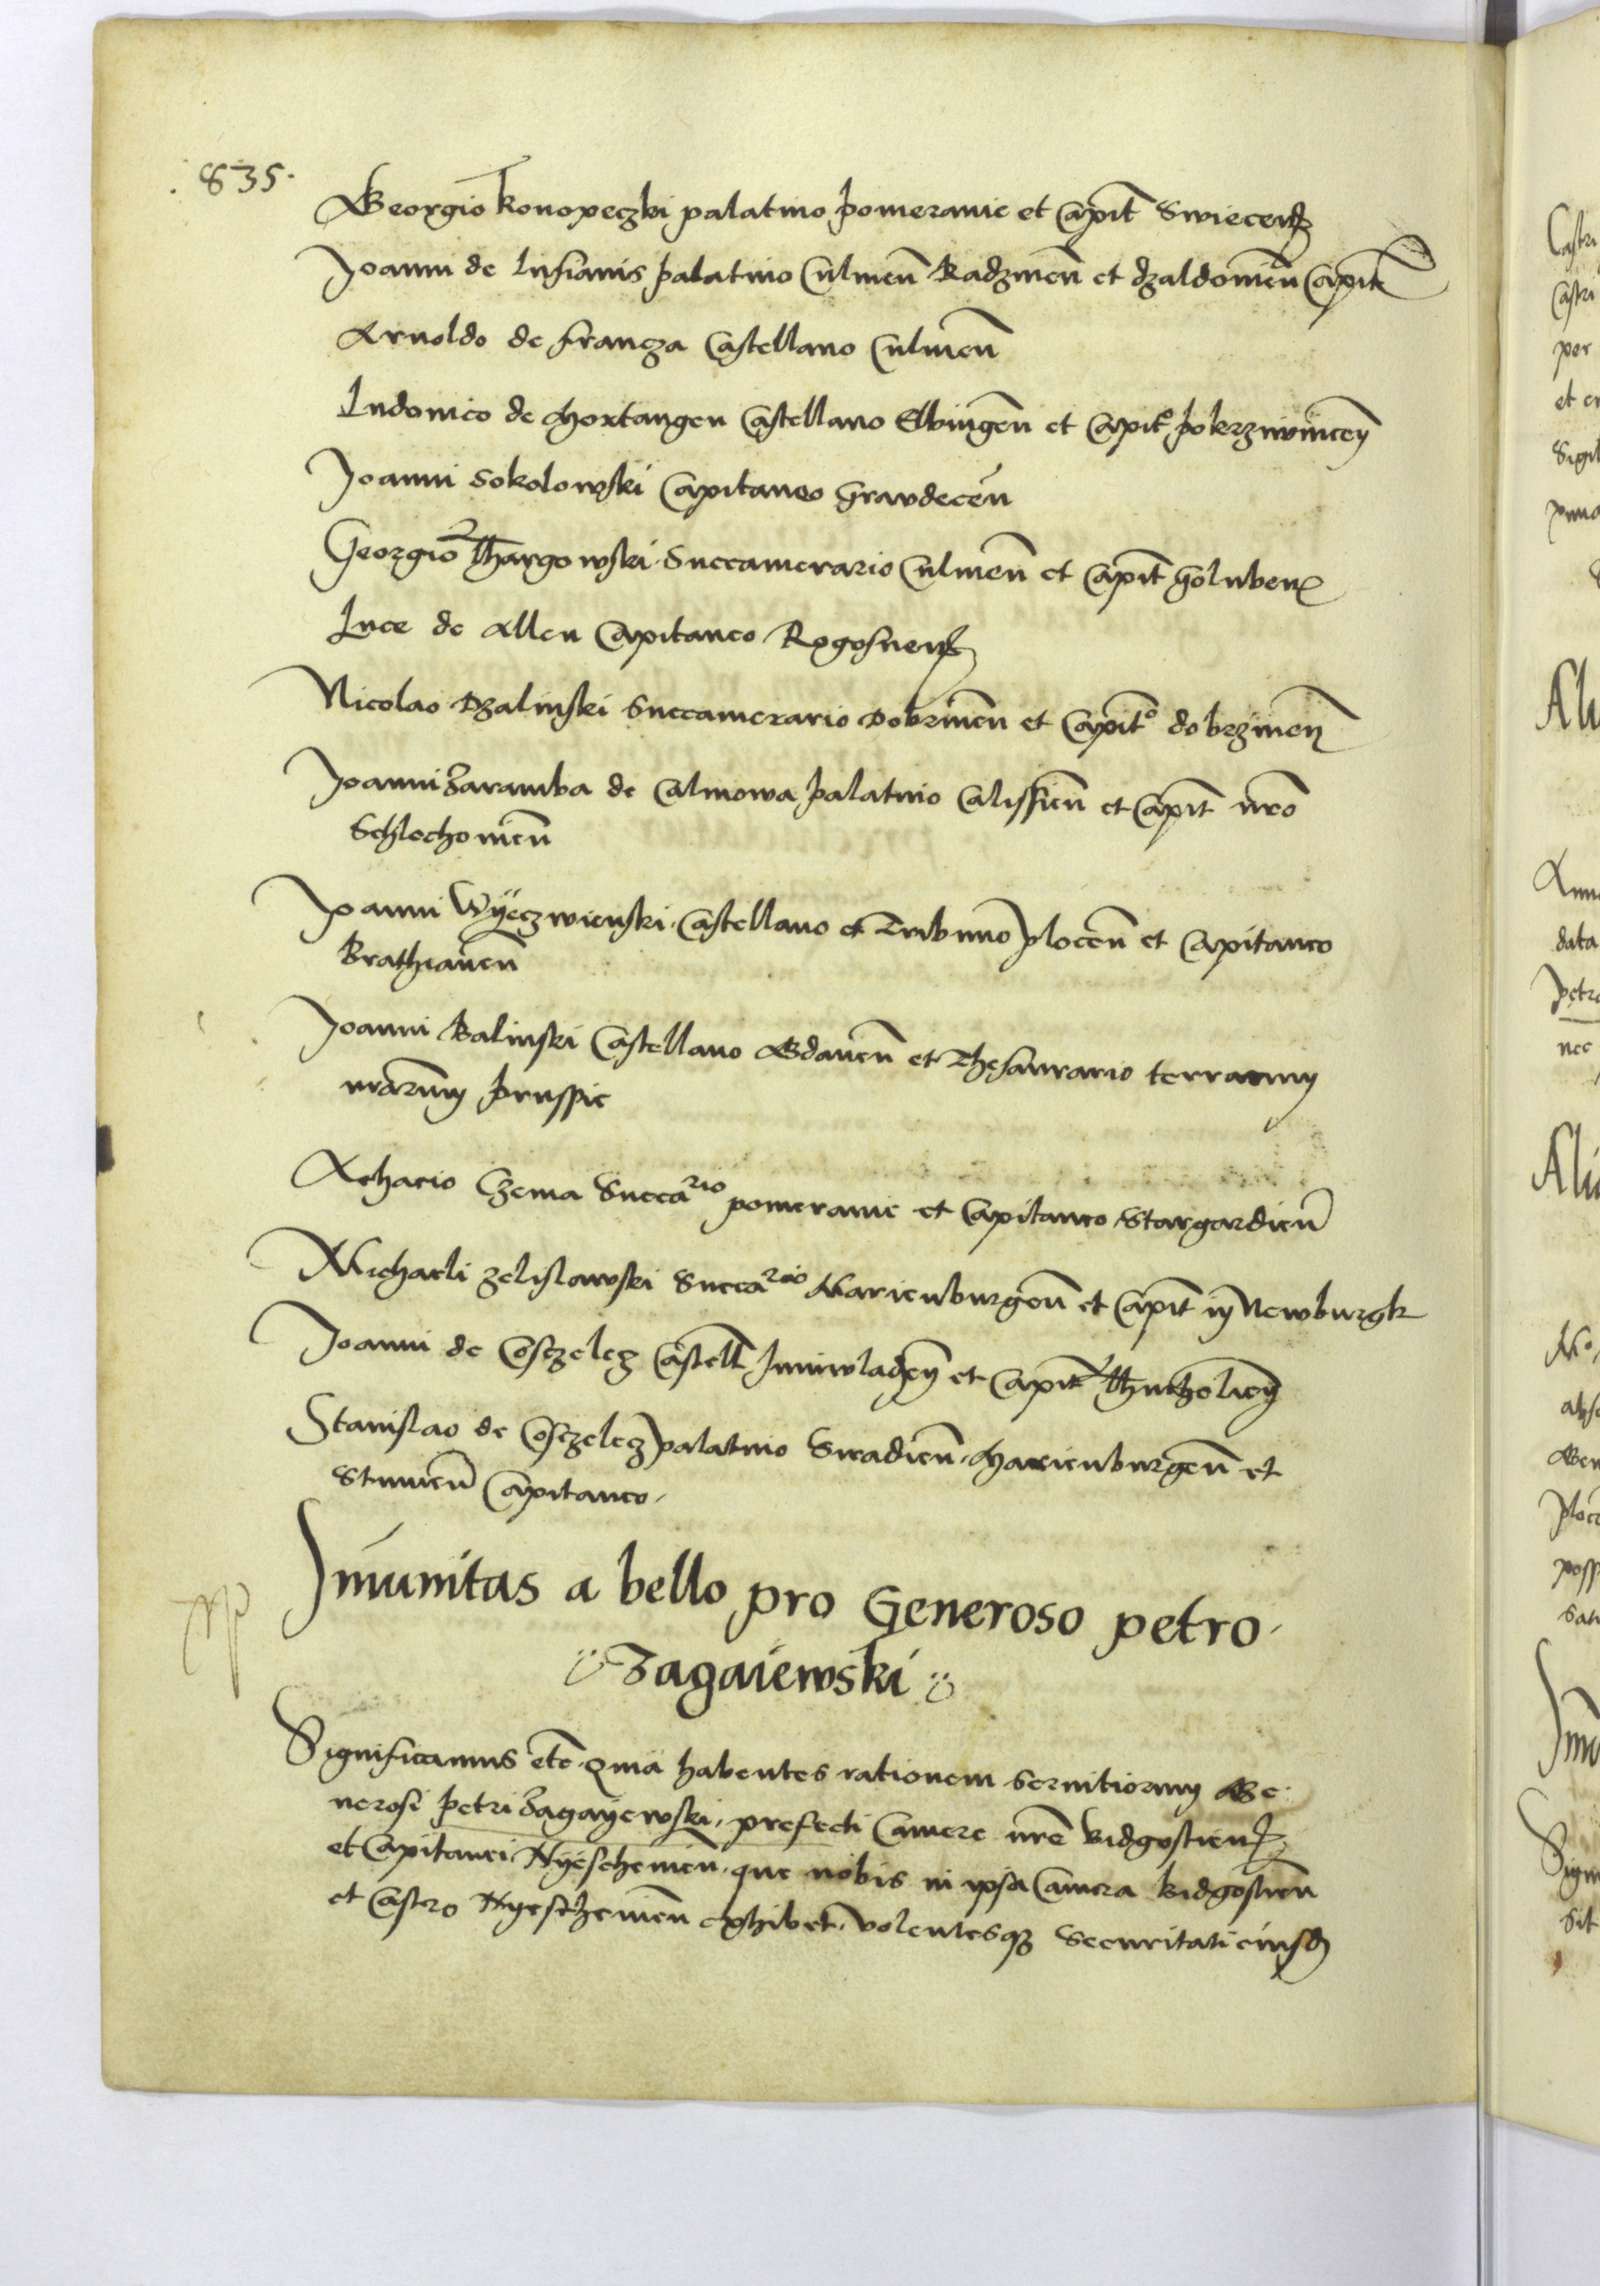 . 835.
Georgio Konopeczki palatino pomeranie et Capit̄ Swiecen̄
Joanni de lusianis palatino Culmen̄ Radzinen̄ et dzaldoinen̄ Capit̄
Arnoldo de francza Castellano Culmen̄
Ludovico de Mortangen Castellano Elbingen̄ et Capit̊ pokrzivincen̄
Joanni Sokolowski Capitaneo Graudecen̄
Georgio Thargowski Succamerario Culmen̄ et Capit̄ Goluben̄
Luce de Allen Capitaneo Rogosnen̄
Nicolao Dzalinski Succamerario Dobrinen̄ et Capit̊ dobrzinen̄
Joanni Zaramba de Calinowa palatino Calissien̄ et Capit̄ nr̄o
Schlochovien̄
Joanni Wyeczwienski Castellano et Tribuno plocen̄ et Capitaneo
Brathianen̄
Joanni Balinski Castellano Gdanen̄ et Thesaurario terrarum
nr̄arum prussie
Achacio Czema Succa^rio pomeranie et Capitaneo Stargardien̄
Michaeli Zelislawski Succa^rio Marienburgen̄ et Capit̄ in Newburgk
Joanni de Cosczelecz Castell̄ Juniwladen̄ et Capit̄ Thucholien̄
Stanislao de Cosczelecz palatino Siradien̄ Marienburgen̄ et
Stumen̄ Capitaneo
Imunitas a bello pro Generoso petro
Zagaiewski
Significamus etc̄ Quia habentes rationem servitiorum Ge
nerosi petri Zagayewski, prefecti Camere nr̄e Bidgostien̄
et Capitanei Nyeschevien̄ que nobis in ipsa Camera Bidgostien̄
et Castro Nyeschevien̄ exhibet, volentesq̄ securitati eiusd̄